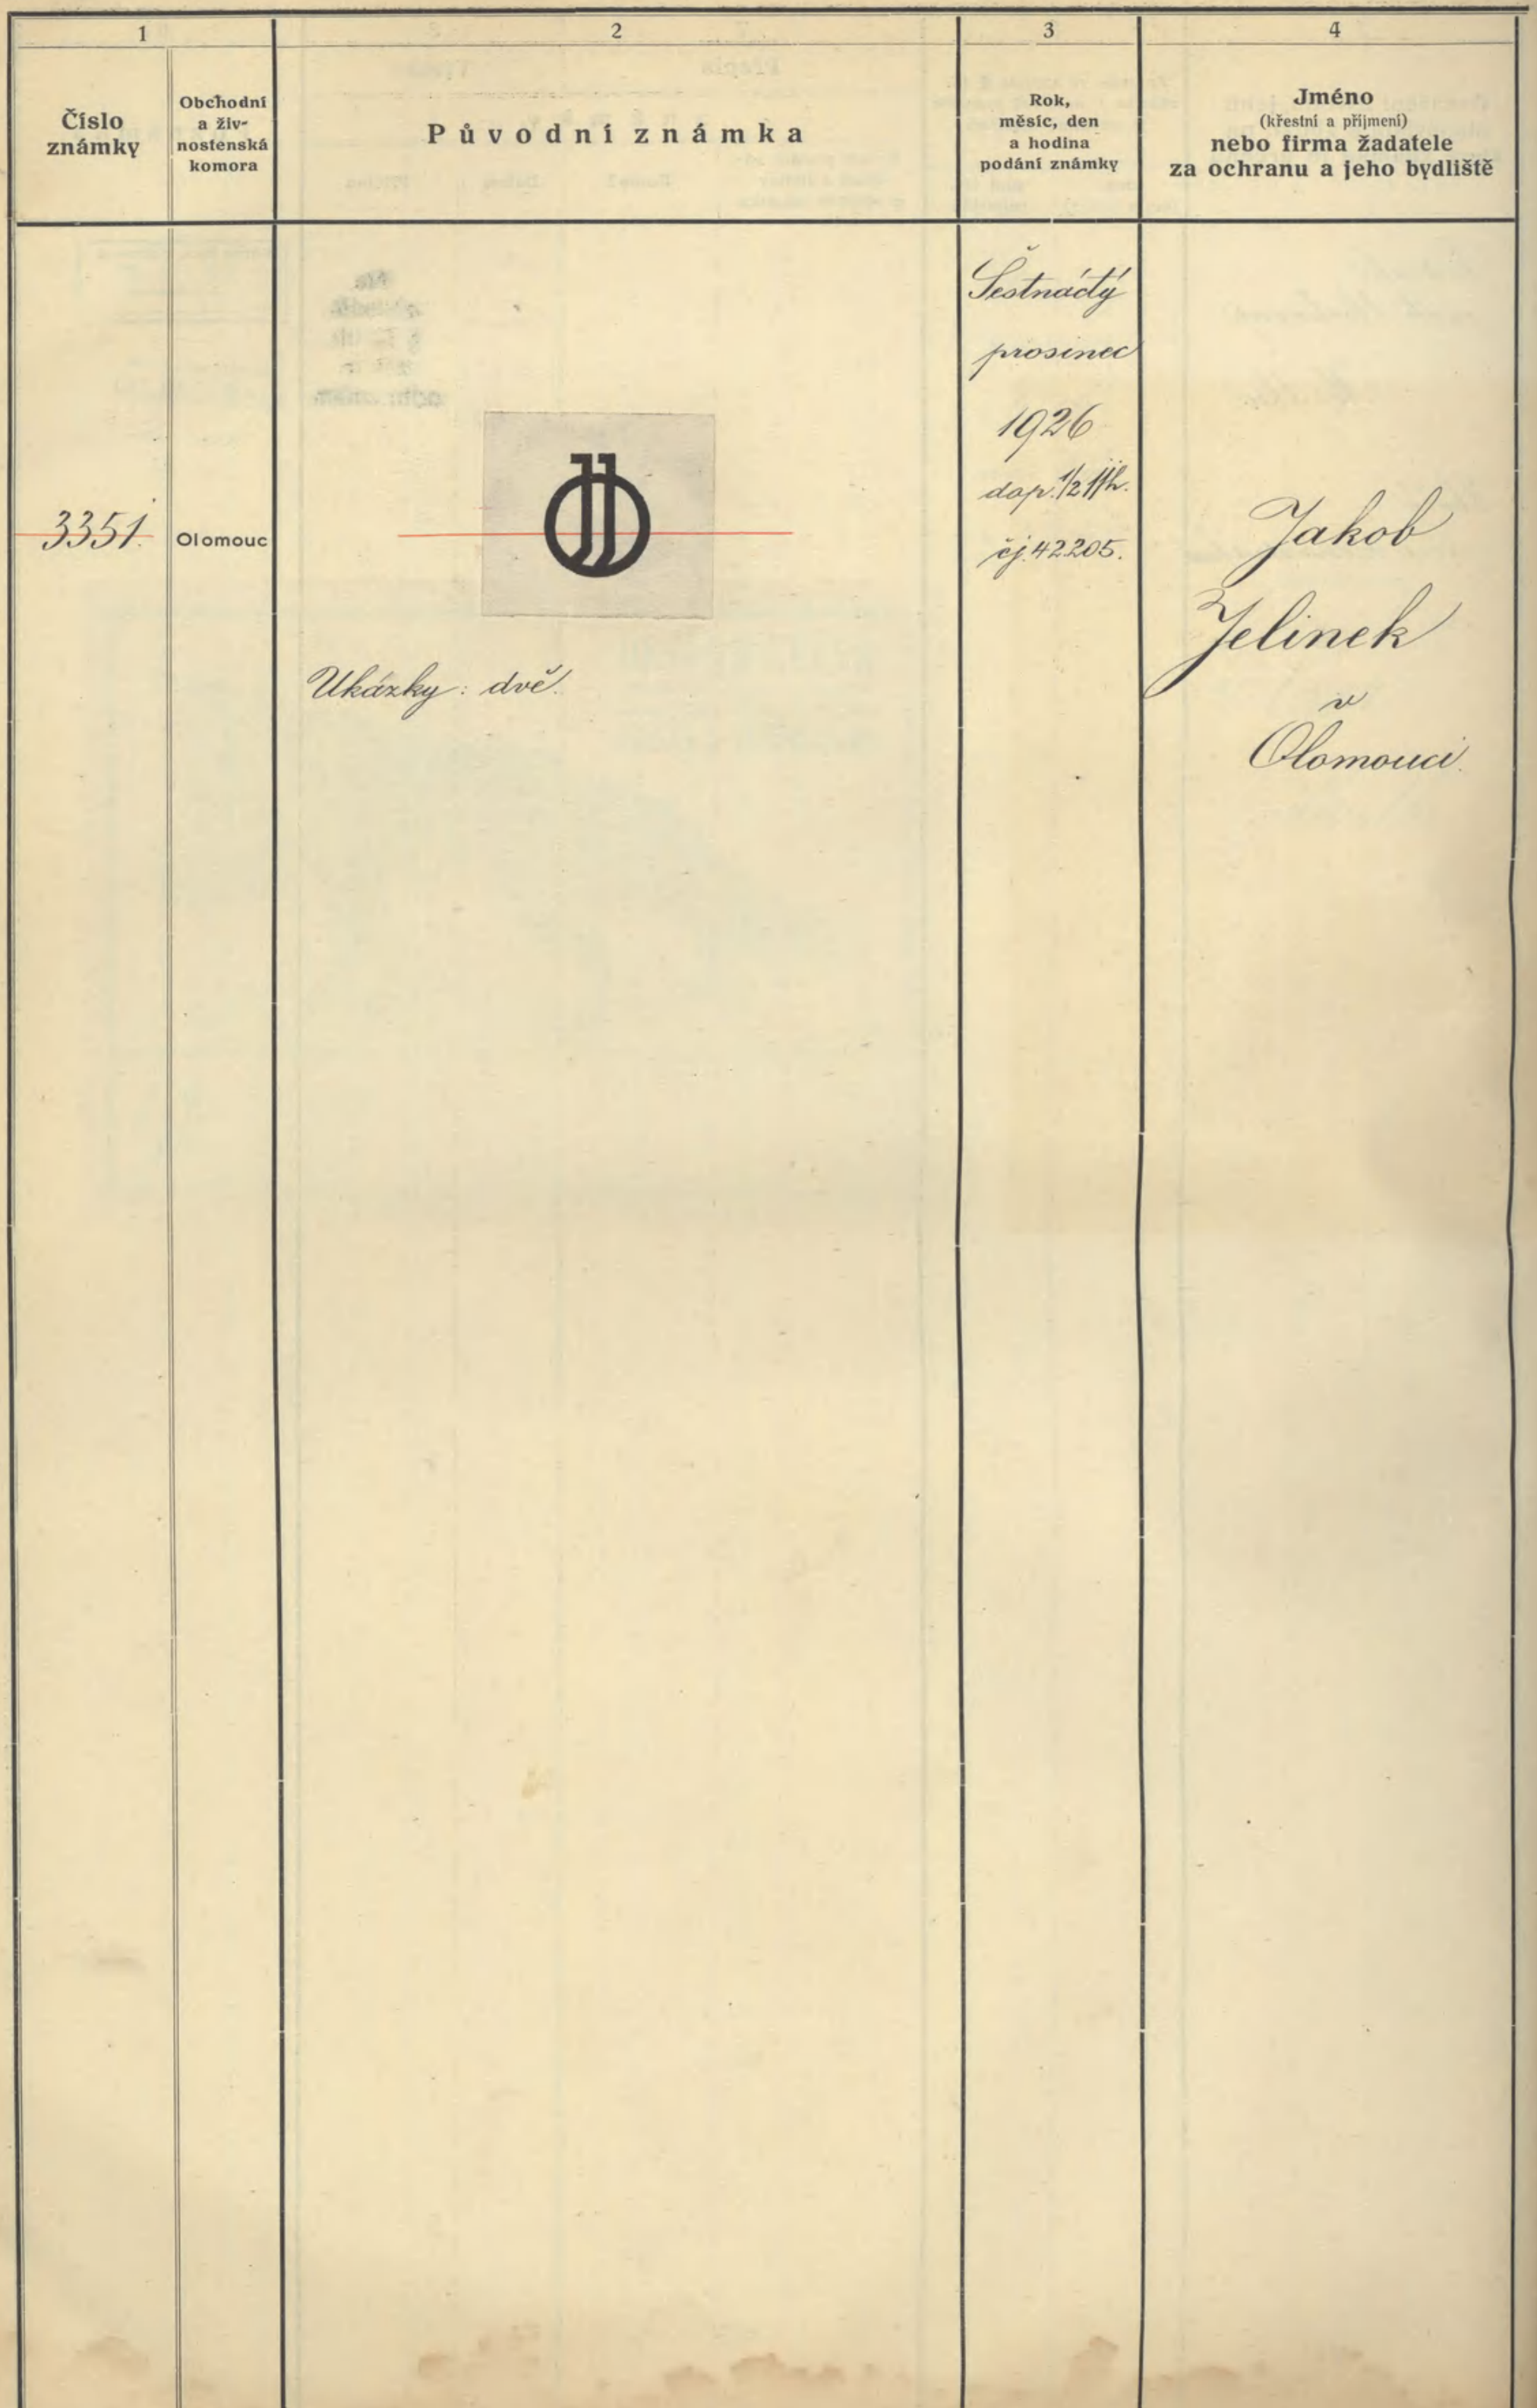 1
2
3
4
Číslo
známky
Obchodní
a živ-
nostenská
komora
Původní známka
Rok,
měsíc, den
a hodina
podání známky
Jméno
(křestní a příjmení)
nebo firma žadatele
za ochranu a jeho bydliště
3351.
Olomouc
JJ
Ukázky: dvě.
Šestnáctý
prosinec
1926
dop. 1/2 11h.
čj. 42205.
Jakob
Jelinek
v
Olomouci.